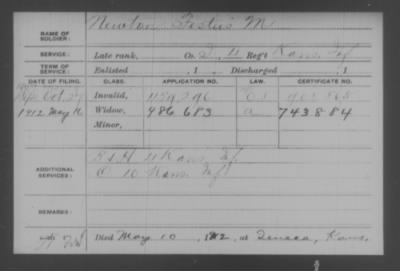 NAME OF SOLDIER: Newton Festus M
SERVICE: Late rank, Co. D, 11 Reg't Kans. Inf
TERM OF SERVICE: Enlisted , 1 . Discharged , 1 .
DATE OF FILING. CLASS. APPLICATION NO. LAW. CERTIFICATE NO.
Invalid,
1912 May Widow, 986 683 a 743884
Minor,
ADDITIONAL SERVICES: 11 Kans. Inf
10 Kans. Inf
REMARKS:
Died May 10 , 1912, at Seneca, Kans.